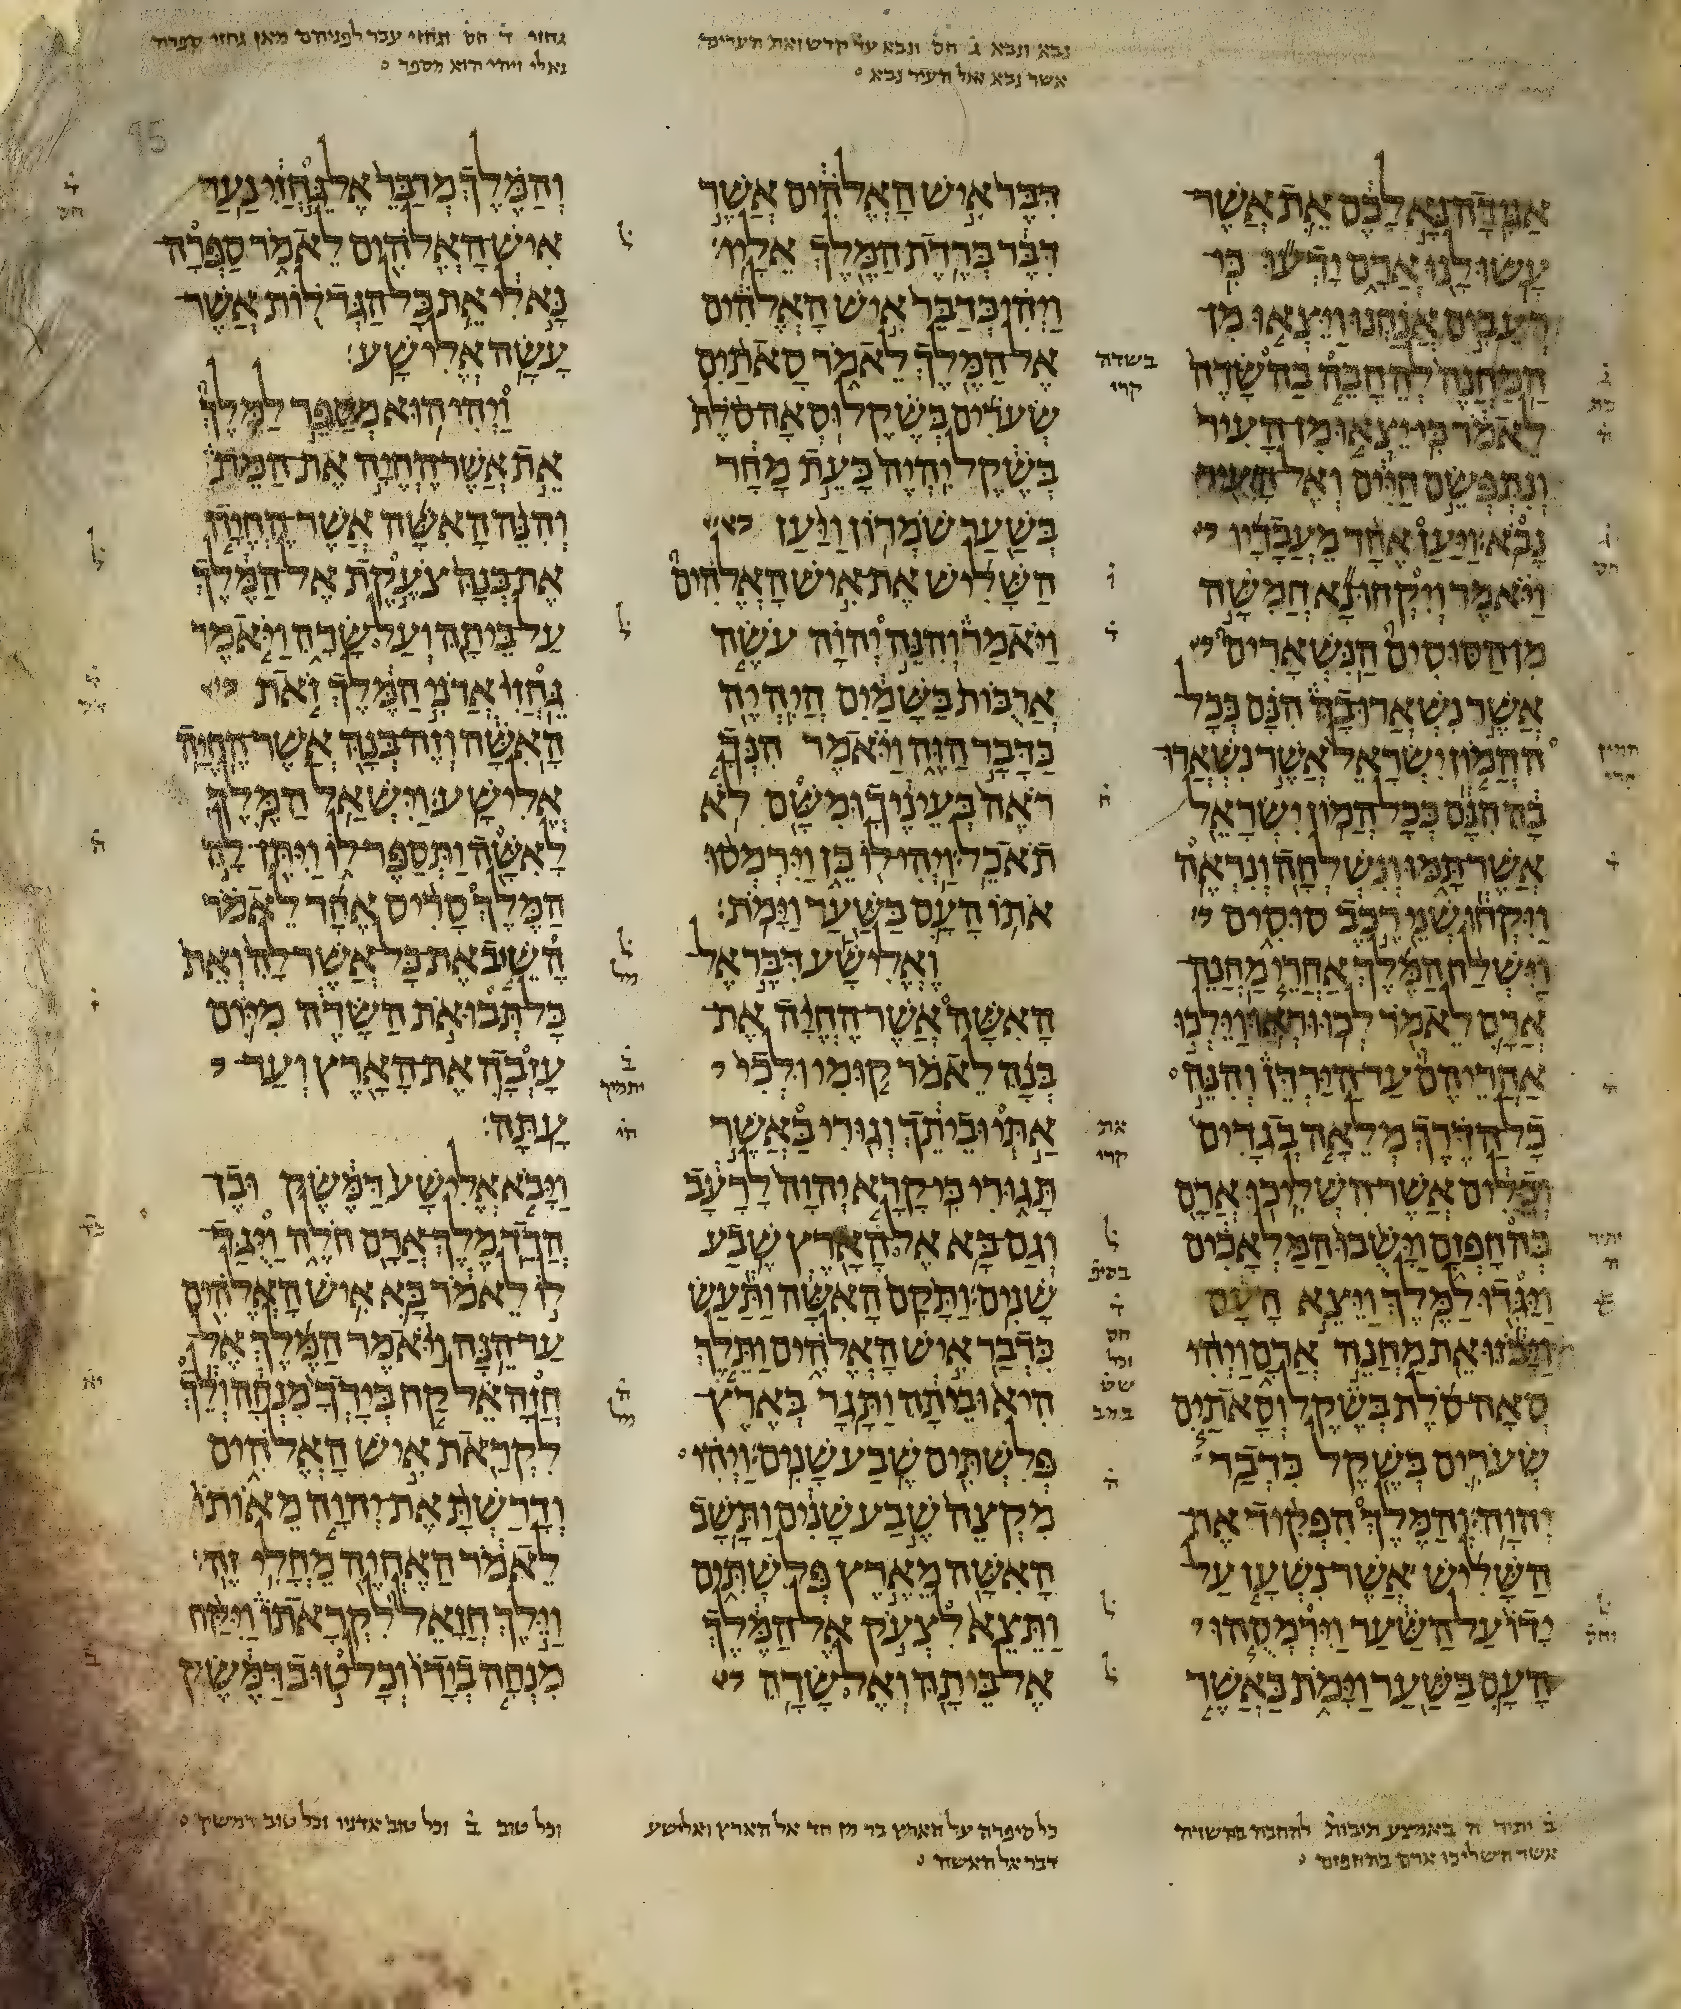 נבא ונבא ג חס ונבא עד קדש ואת הערים
אשר נבא אל העיר נבא
גחזי ד חס וגחזי עבר לפניהם מאן גחזי ספרה
נא לי ויהי הוא מספר
אגידה נא לכם את אשר
עשו לנו ארם ידעו כי
רעבים אנחנו ויצאו מן
המחנה להחבה בהשדה
לאמר כי יצאו מן העיר
ונתפשם חיים ואל העיר
נבא׃ ויען אחד מעבדיו
ויאמר ויקחו נא חמשה
מן הסוסים הנשארים
אשר נשארו בה הנם ככל
ההמון ישראל אשר נשארו
בה הנם ככל המון ישראל
אשר תמו ונשלחה ונראה׃
ויקחו שני רכב סוסים
וישלח המלך אחרי מחנה
ארם לאמר לכו וראו׃ וילכו
אחריהם עד הירדן והנה
כל הדרך מלאה בגדים
וכלים אשר השליכו ארם
בהחפזם וישבו המלאכים
ויגדו למלך׃ ויצא העם
ויבזו את מחנה ארם ויהי
סאה סלת בשקל וסאתים
שערים בשקל כדבר
יהוה׃ והמלך הפקיד את
השליש אשר נשען על
ידו על השער וירמסהו
העם בשער וימת כאשר
בשדה
קרי
את
קרי
דבר איש האלהים אשר
דבר ברדת המלך אליו׃
ויהי כדבר איש האלהים
אל המלך לאמר סאתים
שערים בשקל וסאה סלת
בשקל יהיה כעת מחר
בשער שמרון׃ ויען
השליש את איש האלהים
ויאמר והנה יהוה עשה
ארבות בשמים היהיה
כדבר הזה ויאמר הנך
ראה בעיניך ומשם לא
תאכל׃ ויהי לו כן וירמסו
אתו העם בשער וימת׃
ואלישע דבר אל
האשה אשר החיה את
בנה לאמר קומי ולכי
אתי וביתך וגורי באשר
תגורי כי קרא יהוה לרעב
וגם בא אל הארץ שבע
שנים׃ ותקם האשה ותעש
כדבר איש האלהים ותלך
היא וביתה ותגר בארץ
פלשתים שבע שנים׃ ויהי
מקצה שבע שנים ותשב
האשה מארץ פלשתים
ותצא לצעק אל המלך
אל ביתה ואל שדה׃
והמלך מדבר אל גחזי נער
איש האלהים לאמר ספרה
נא לי את כל הגדלות אשר
עשה אלישע׃
ויהי הוא מספר למלך
את אשר החיה את המת
והנה האשה אשר החיה
את בנה צעקת אל המלך
על ביתה ועל שדה ויאמר
גחזי אדני המלך זאת
האשה וזה בנה אשר החיה
אלישע׃ וישאל המלך
לאשה ותספר לו ויתן לה
המלך סריס אחד לאמר
השיב את כל אשר לה ואת
כל תבואת השדה מיום
עזבה את הארץ ועד
עתה׃
ויבא אלישע דמשק ובן
הדד מלך ארם חלה ויגד
לו לאמר בא איש האלהים
עד הנה׃ ויאמר המלך אל
חזהאל קח בידך מנחה ולך
לקראת איש האלהים
ודרשת את יהוה מאותו
לאמר האחיה מחלי זה׃
וילך חזאל לקראתו ויקח
מנחה בידו וכל טוב דמשק
ב יתיר ה באמצע תיבות להחבה בהשדה
אשר השליכו ארם בהחפזם
כל סיפרה על הארץ בר מן חד אל הארץ ואלישע
דבר אל האשה
וכל טוב ב וכל טוב אדניו וכל טוב דמשק